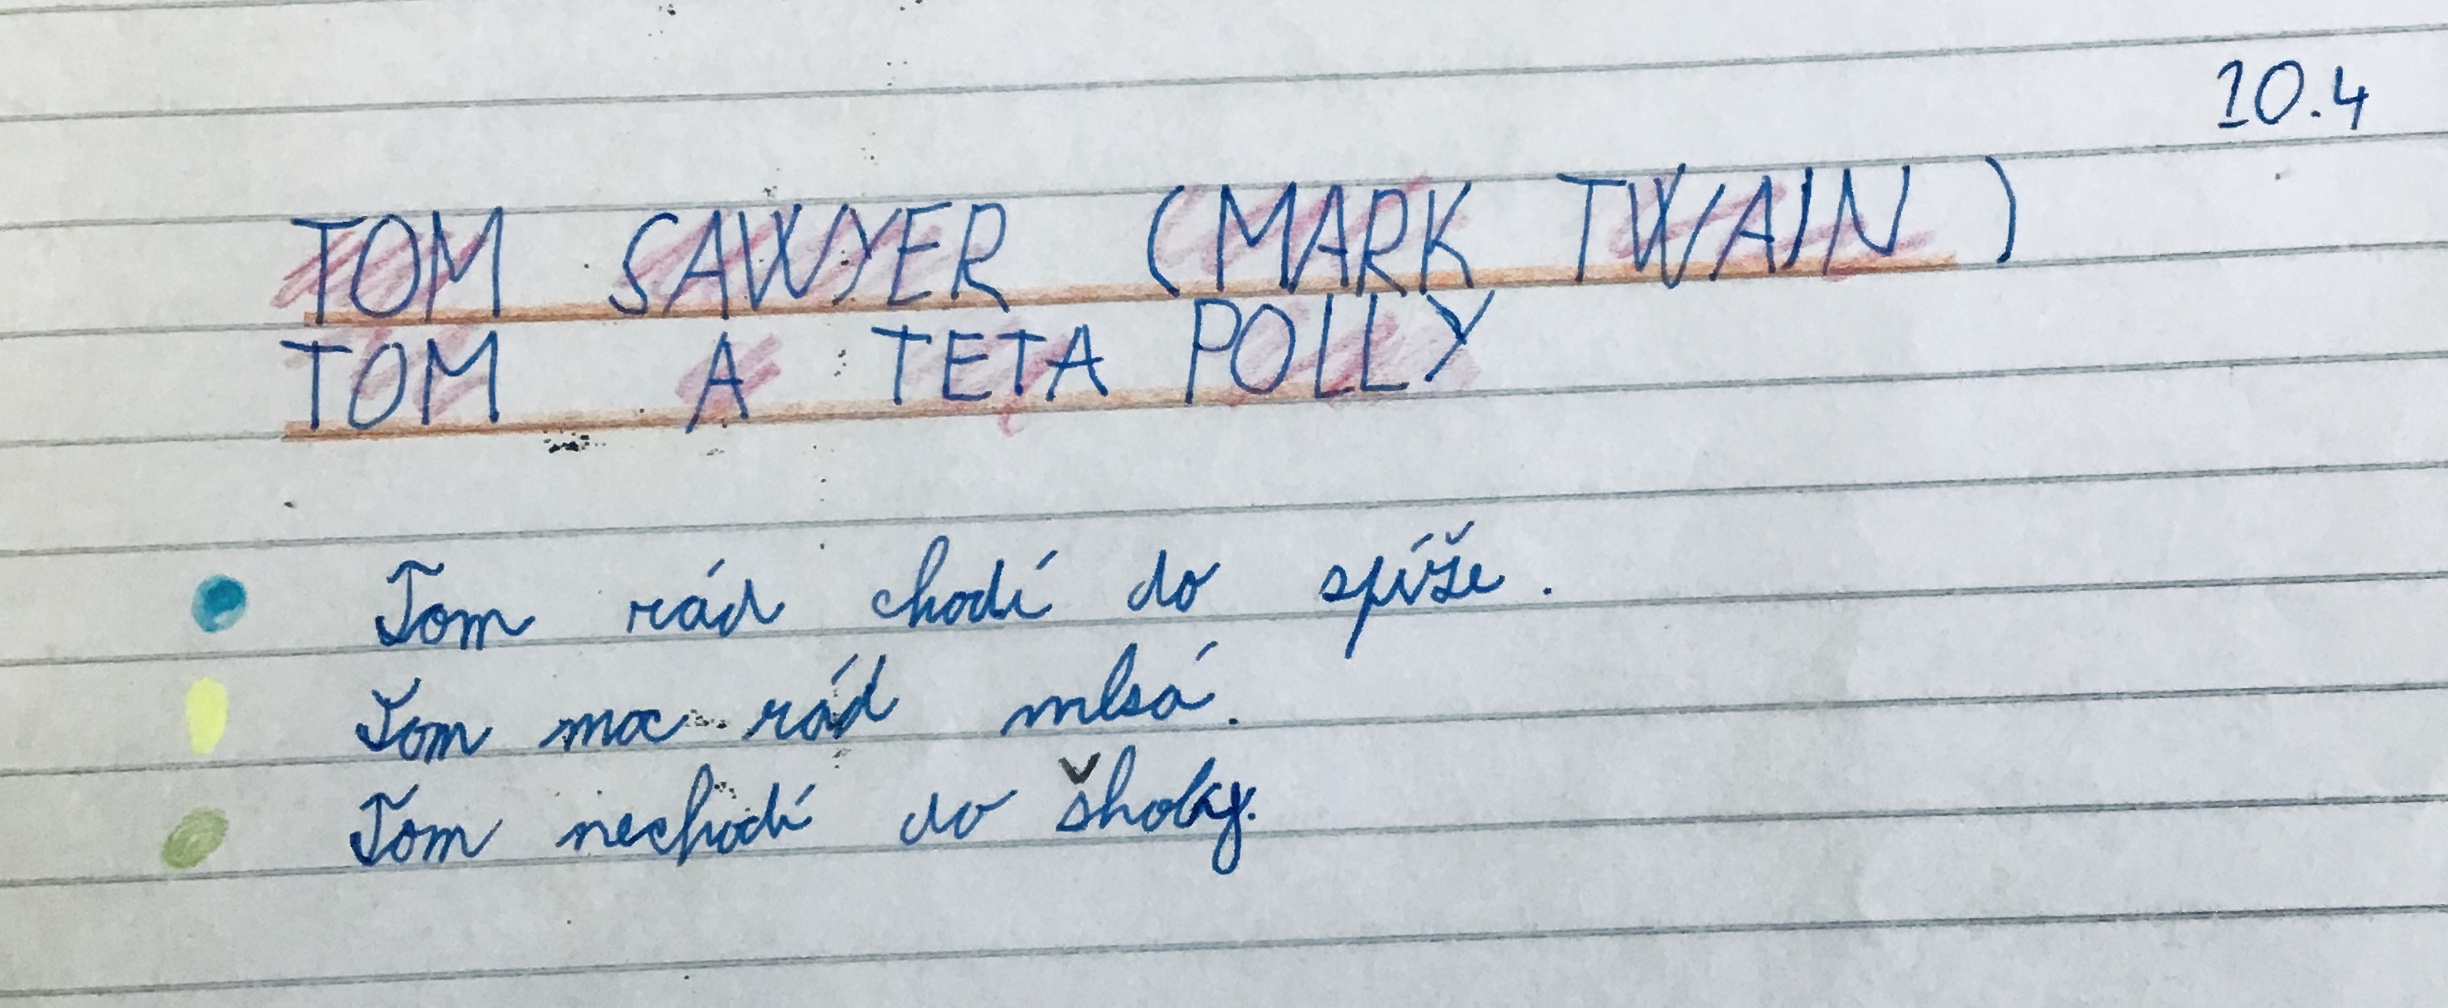 10.4
TOM SAWYER (MARK TWAIN)
TOM A TETA POLLY
Tom rád chodí do spíže.
Tom moc rád mlsá.
Tom nechodí do školy.